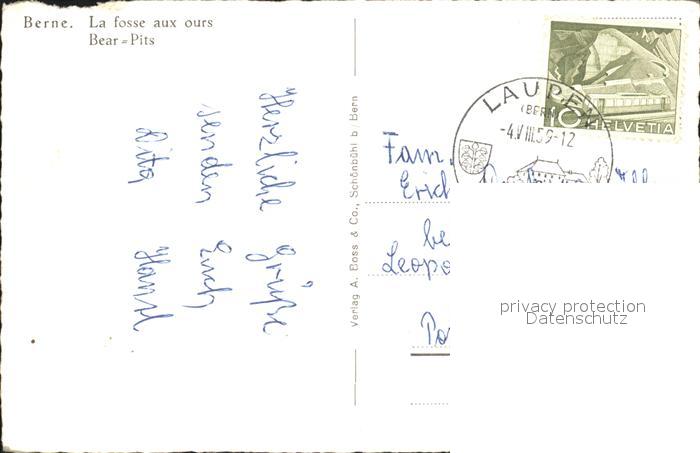 Berne. La fosse aux ours
Bear=Pits
Herzliche Grüße
senden Euch
Dita Hansl
Verlag A. Boss & Co., Schönbühl b. Bern
LAUPEN
(BERN)
-4.VIII.59-12
10 HELVETIA
Fam.
Erich
be
Leopo
Po
privacy protection
Datenschutz